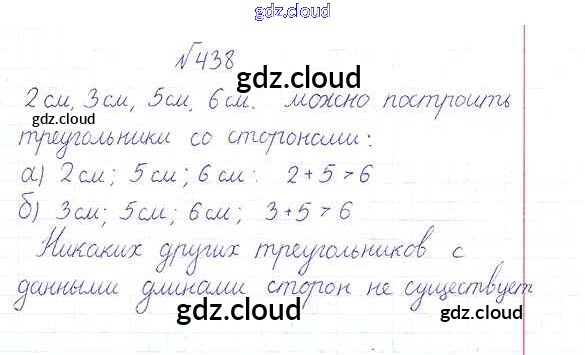 gdz.cloud
№438
gdz.cloud
2 см, 3 см, 5 см, 6 см. можно построить
gdz.cloud
треугольники со сторонами:
а) 2 см; 5 см; 6 см: 2+5>6
gdz.cloud
б) 3 см; 5 см; 6 см; 3+5>6
Никаких других треугольников с
данными длинами сторон не существует
gdz.cloud
gdz.cloud